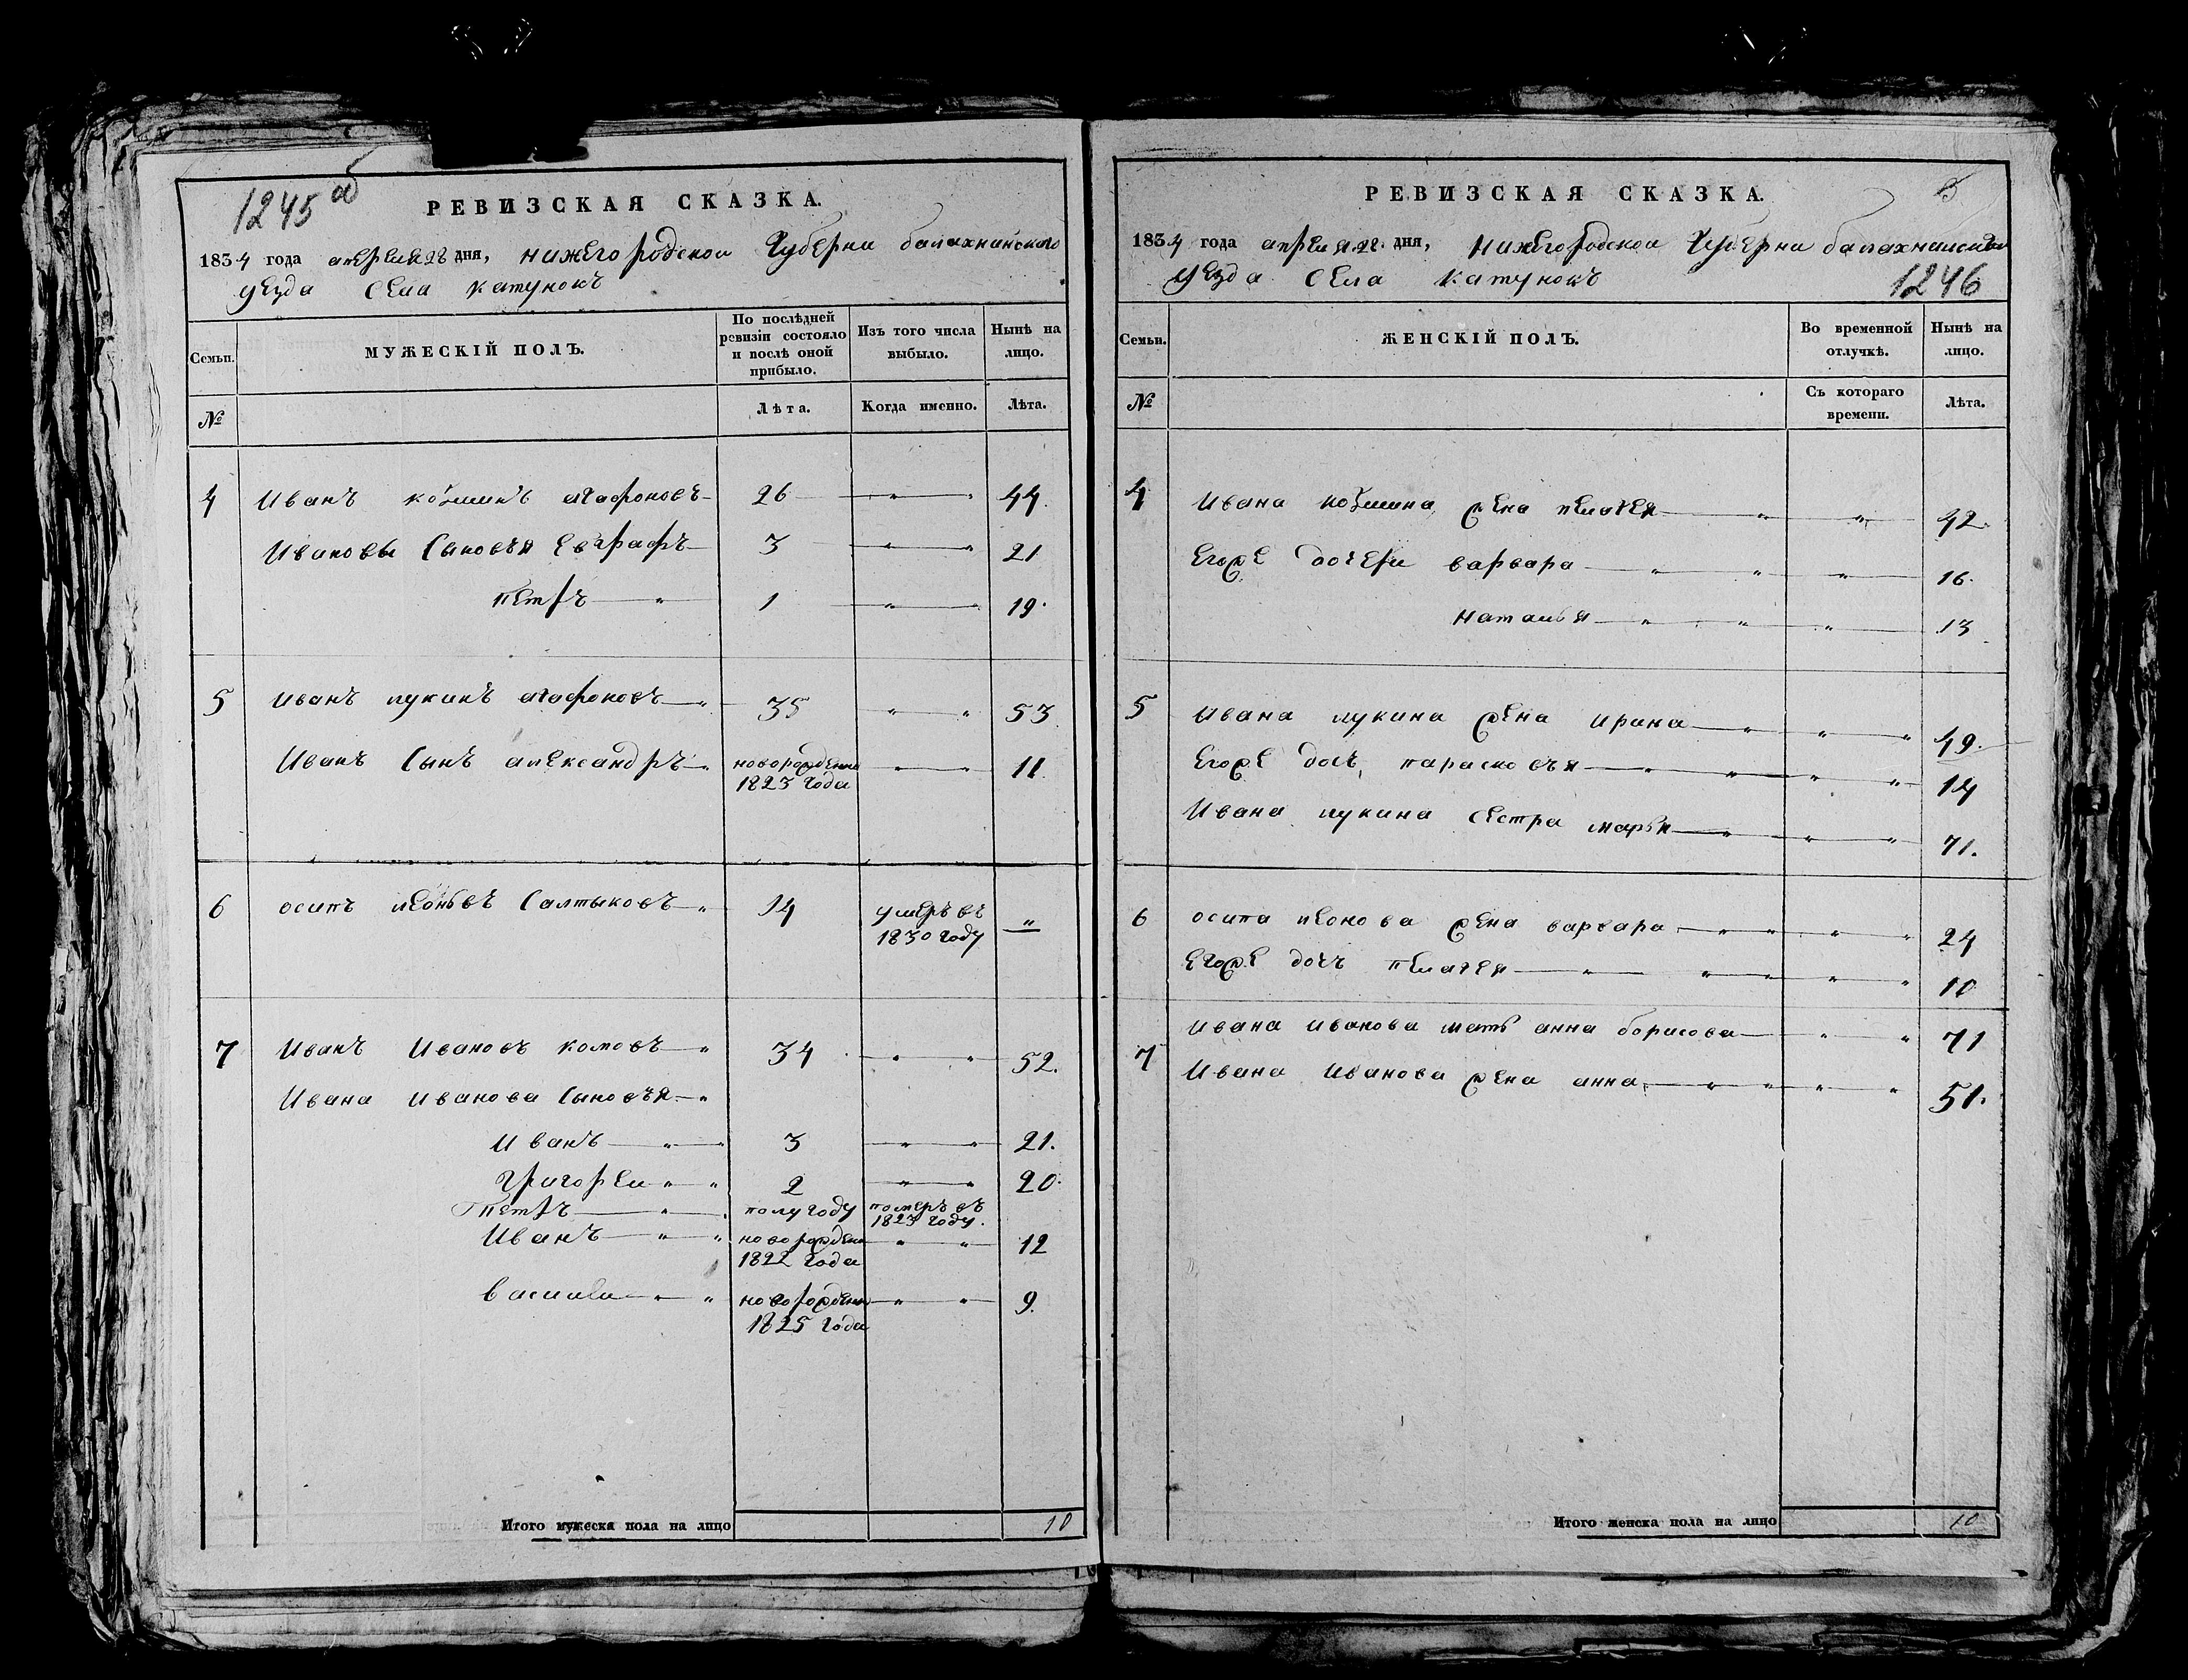 1245 об
РЕВИЗСКАЯ СКАЗКА.
1834 года апреля 28 дня, нижегородской Губерни балахнинского
уезда Села катунокъ
Семьи. МУЖЕСКІЙ ПОЛЪ. По послѣдней ревизіи состояло и послѣ оной прибыло. Изъ того числа выбыло. Нынѣ на лицо.
№ Лѣта. Когда именно. Лѣта.
4 Иванъ козминъ агафоновъ 26 " " 44.
Ивановы Сыновъя евграфъ 3 " " 21
петръ " 1 " " 19.
5 иванъ лукинъ агафоновъ " 35 " " 53
Иванъ Сынъ александръ " новорожденна 1823 года " " 11.
6 осипъ леоновъ Салтыковъ " 14 умеръ въ 1830 году "
7 Иванъ Ивановъ комовъ " 34 " " 52.
Ивана иванова Сыновъя "
иванъ " " 3 " " 21.
григореи " " 2 " " 20.
петръ " полугоду померъ въ 1823 году.
Иванъ " " новорожден 1822 года " " 12
василеи " " новорожден 1825 года " " 9.
Итого мужеска пола на лицо 10
РЕВИЗСКАЯ СКАЗКА. 5
1834 года апреля 28. дня, нижегородской Губерни балахнинскаго
уезда Села катунокъ 1246
Семьи. ЖЕНСКІЙ ПОЛЪ. Во временной отлучкѣ. Нынѣ на лицо.
№ Съ котораго времени. Лѣта.
4 Ивана козмина жена пелагея " " 42.
Егоже дочери варвара " " " 16.
наталья " " " 13
5 Ивана лукина жена ирина " " " 49.
Егоже дочь, парасковъя " " " " 14
Ивана лукина сестра марья " " " 71.
6 осипа леонова жена варвара " " " " 24
Егоже дочъ пелагея " " " " " 10
ивана иванова мать анна борисова " " 71
7 Ивана иванова жена анна " " " " 51.
Итого женска пола на лицо 10